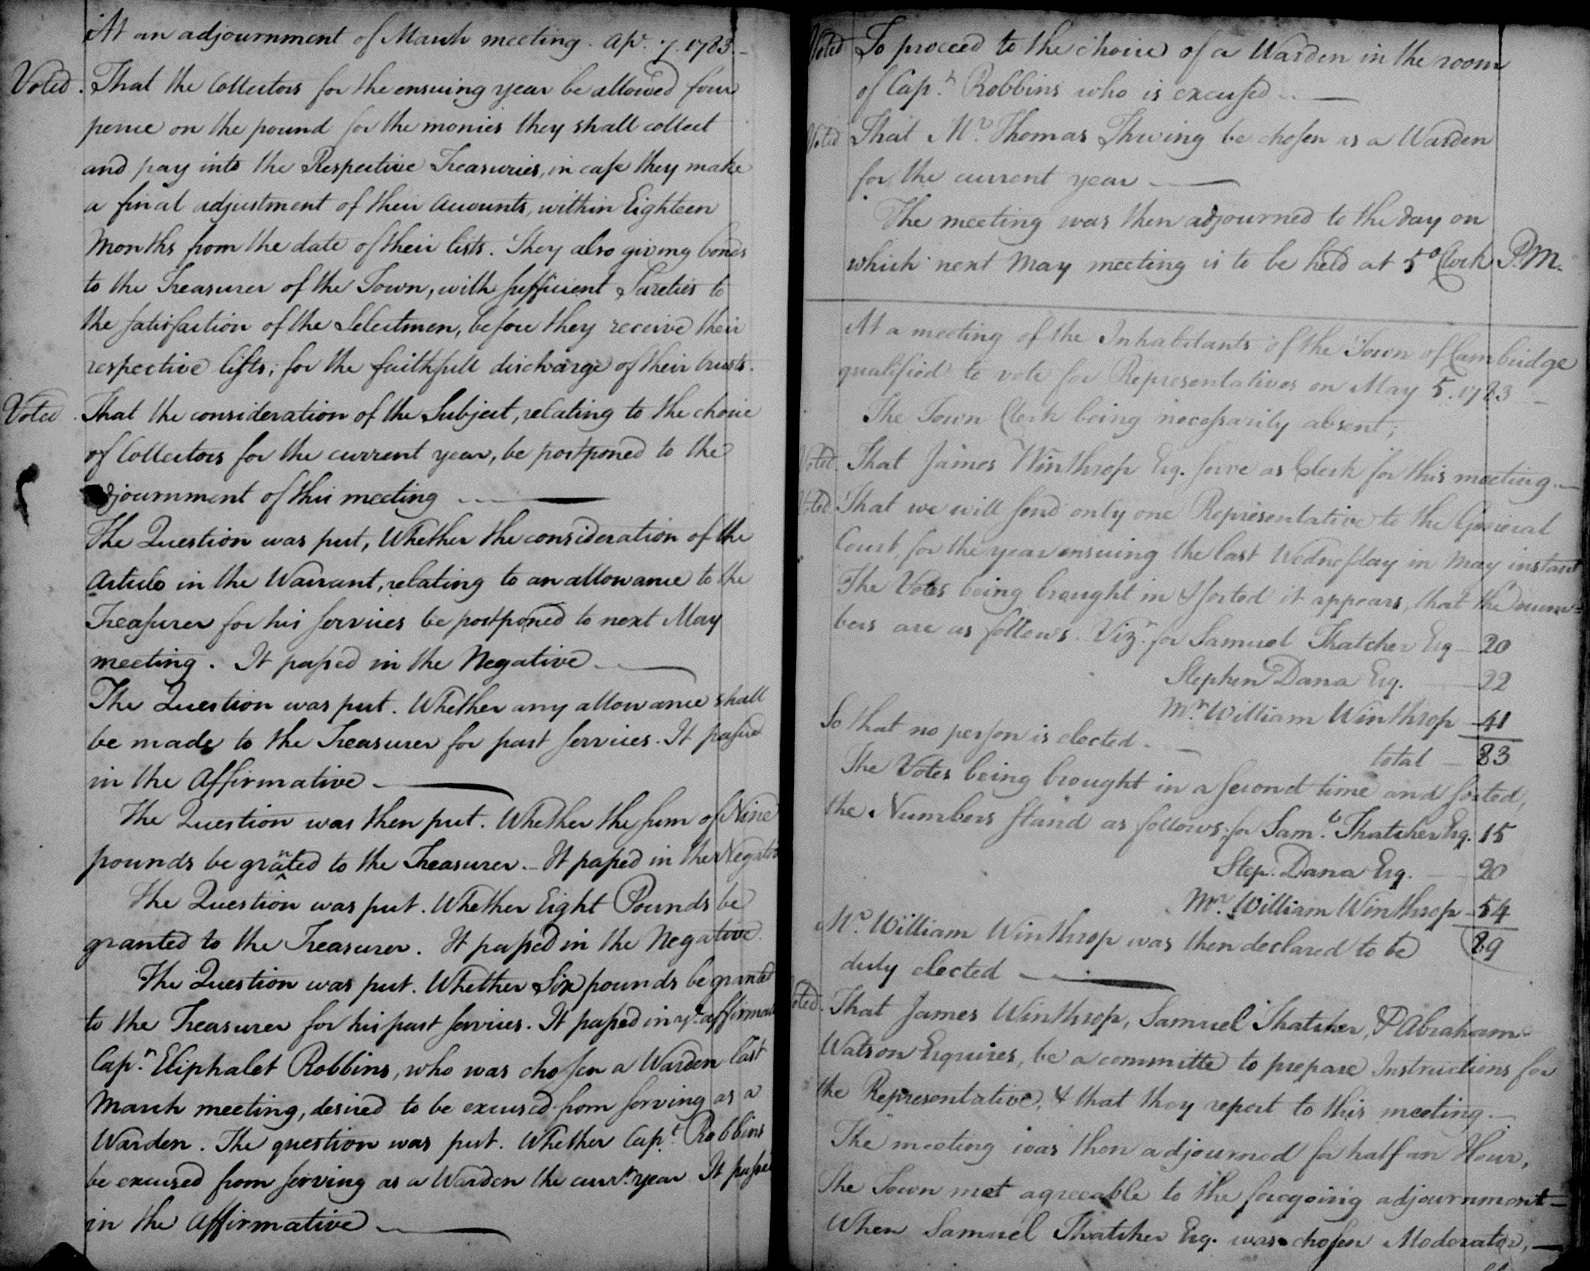 At an adjournment of March meeting. Apr. 7. 1783.
Voted. That the Collectors for the ensuing year be allowed four
pence on the pound for the monies they shall collect
and pay into the Respective Treasuries, in case they make
a final adjustment of their accounts, within Eighteen
Months from the date of their lists. They also giving bonds
to the Treasurer of the Town, with sufficient Sureties to
the satisfaction of the Selectmen, before they receive their
respective lists; for the faithfull discharge of their trusts.
Voted. That the consideration of the Subject, relating to the choice
of Collectors for the current year, be postponed to the
adjournment of this meeting
The Question was put, Whether the consideration of the
Article in the Warrant, relating to an allowance to the
Treasurer for his services be postponed to next May
meeting. It passed in the Negative
The Question was put. Whether any allowance shall
be made to the Treasurer for past services. It passed
in the Affirmative
The Question was then put. Whether the sum of Nine
pounds be granted to the Treasurer - It passed in the Negative
The Question was put. Whether Eight Pounds be
granted to the Treasurer. It passed in the Negative.
The Question was put. Whether Six pounds be granted
to the Treasurer for his past services. It passed in ye affirmative
Capn. Eliphalet Robbins, who was chosen a Warden last
March meeting, desired to be excused from serving as a
Warden. The question was put. Whether Capt. Robbins
be excused from serving as a Warden the currt. year. It passed
in the Affirmative
Voted To proceed to the choice of a Warden in the room
of Capt. Robbins who is excused
Voted That Mr. Thomas Thwing be chosen as a Warden
for the current year
The meeting was then adjourned to the day on
which next May meeting is to be held at 5 o Clock P.M.
At a meeting of the Inhabitants of the Town of Cambridge
qualified to vote for Representatives on May 5. 1783
The Town Clerk being necessarily absent;
Voted. That James Winthrop Esq. serve as Clerk for this meeting
Voted That we will send only one Representative to the General
Court, for the year ensuing the last Wednesday in May instant
The Votes being brought in & sorted it appears, that the num-
bers are as follows. Vizt. for Samuel Thatcher Esq - 20
Stephen Dana Esq. - 22
Mr. William Winthrop - 41
So that no person is elected.
total - 83
The Votes being brought in a second time and sorted,
the Numbers stand as follows, for Saml. Thatcher Esq. 15
Step. Dana Esq. - 20
Mr. William Winthrop - 54
Mr. William Winthrop was then declared to be 89
duly elected
Voted. That James Winthrop, Samuel Thatcher, & Abraham
Watson Esquires, be a committe to prepare Instructions for
the Representative, & that they report to this meeting
The meeting was then adjourned for half an Hour,
The Town met agreeable to the foregoing adjournment
When Samuel Thatcher Esq. was chosen Moderator,